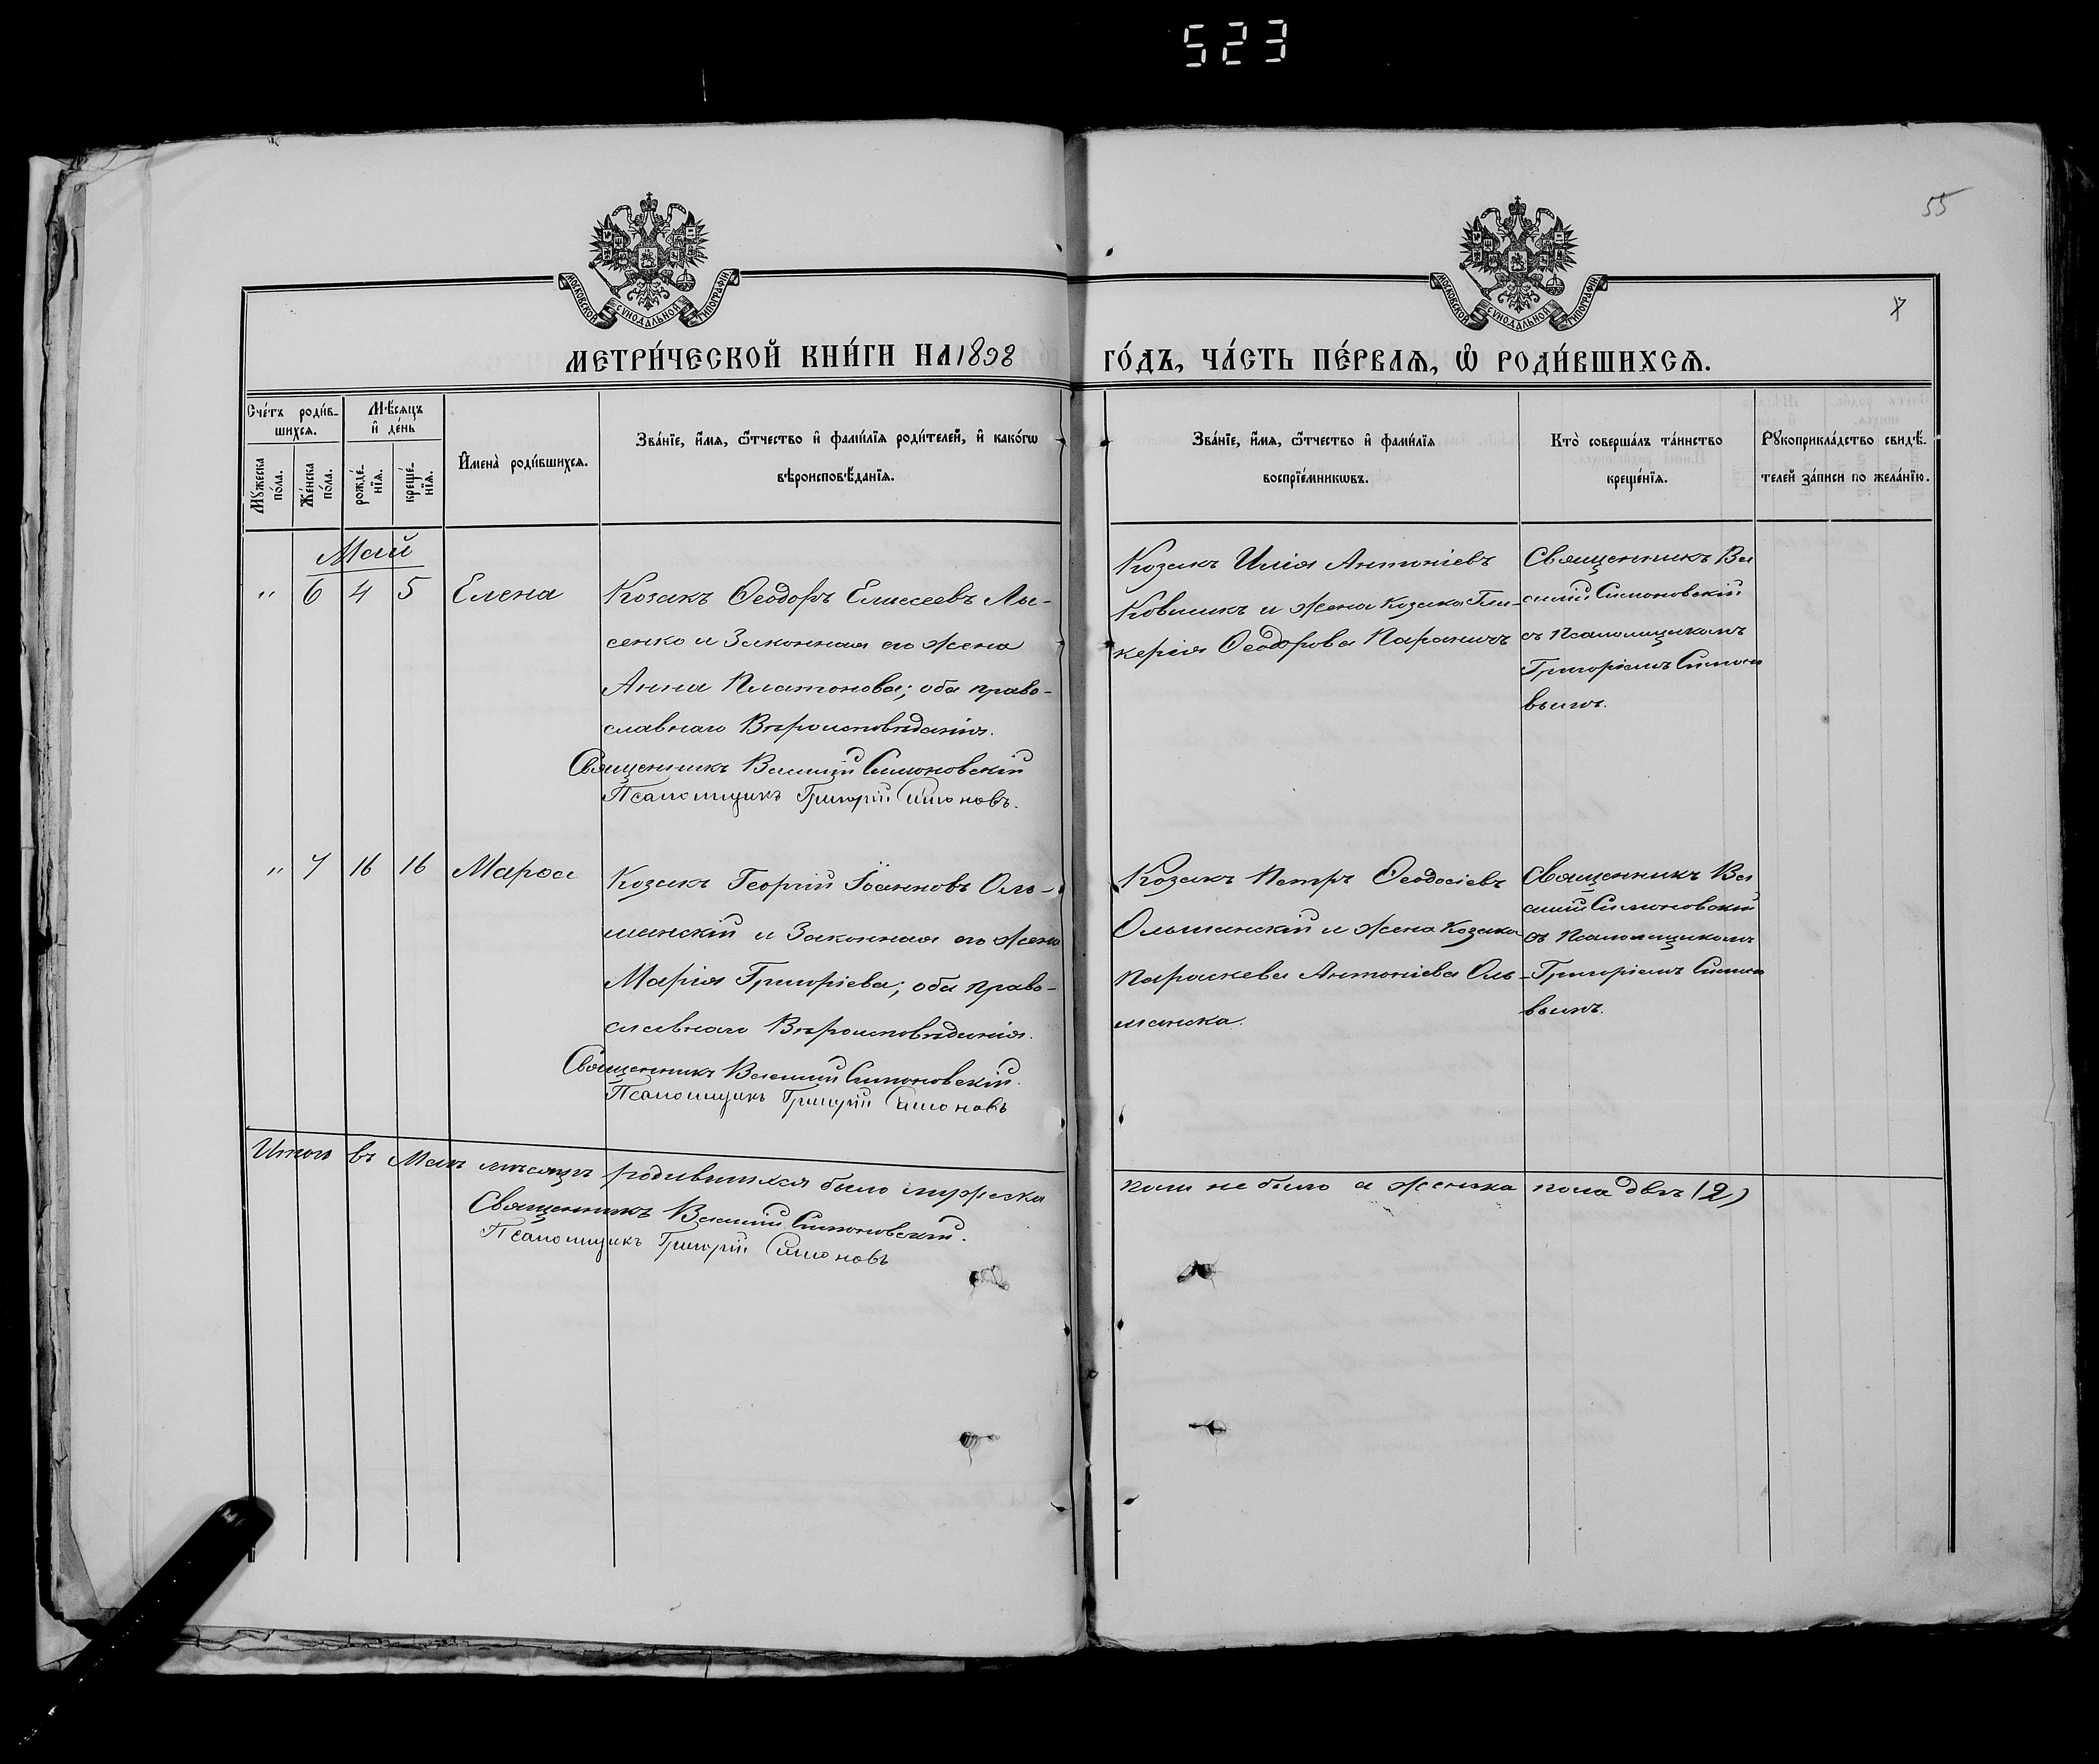 523
55
МОСКОВСКОЙ СѴНОДАЛЬНОЙ ТИПОГРАФІИ
МОСКОВСКОЙ СѴНОДАЛЬНОЙ ТИПОГРАФІИ
МЕТРИ́ЧЕСКОЙ КНИ́ГИ НА 1898 ГО́ДЪ, ЧА́СТЬ ПЕ́РВАѦ, Ѡ҆ РОДИ́ВШИХСѦ.
Сче́тъ роди́в-
шихсѧ.
Мꙋ́жеска
по́ла.
Же́нска
по́ла.
Мѣ́сѧцъ
и҆ де́нь
рожде́-
нїѧ.
креще́-
нїѧ.
И҆мена̀ роди́вшихсѧ.
Зва́нїе, и҆́мѧ, ѻ҆́тчество и҆ фами́лїѧ роди́телей, и҆ како́гѡ
вѣроисповѣ́данїѧ.
Зва́нїе, и҆́мѧ, ѻ҆́тчество и҆ фами́лїѧ
воспрїе́мникѡвъ.
Кто̀ соверша́лъ та́инство
креще́нїѧ.
Рꙋкоприкла́дство свидѣ́-
телей за́писи по жела́нїю.
Май
" 6 4 5 Елена
Козакъ Ѳеодоръ Елисеевъ Лы-
сенко и Законная его жена
Анна Платонова; оба право-
славнаго Вѣроисповѣданія.
Священникъ Василий Симоновскій
Псаломщикъ Григорій Симоновъ.
Козакъ Илія Антоніевъ
Ковшикъ и жена козака Гли-
керія Ѳеодорова Параничъ
Священникъ Ва
силій Симоновскій
съ Псаломщикомъ
Григоріемъ Симоно
вымъ.
" 7 16 16 Марѳа
Козакъ Георгій Іоанновъ Оль-
шанскій и Законная его жена
Марія Григоріева; оба право-
славнаго Вѣроисповѣданія.
Священникъ Василий Симоновскій.
Псаломщикъ Григорій Симоновъ
Козакъ Петръ Ѳеодосіевъ
Ольшанскій и жена Козака
Параскева Антоніева Оль-
шанска.
Священникъ Ва
силій Симоновскій
съ Псаломщикомъ
Григоріемъ Симоно
вымъ.
Итого въ Маѣ мѣсяцѣ родившихся было мужеска пола не было а женска пола двѣ (2)
Священникъ Василий Симоновскій.
Псаломщикъ Григорій Симоновъ